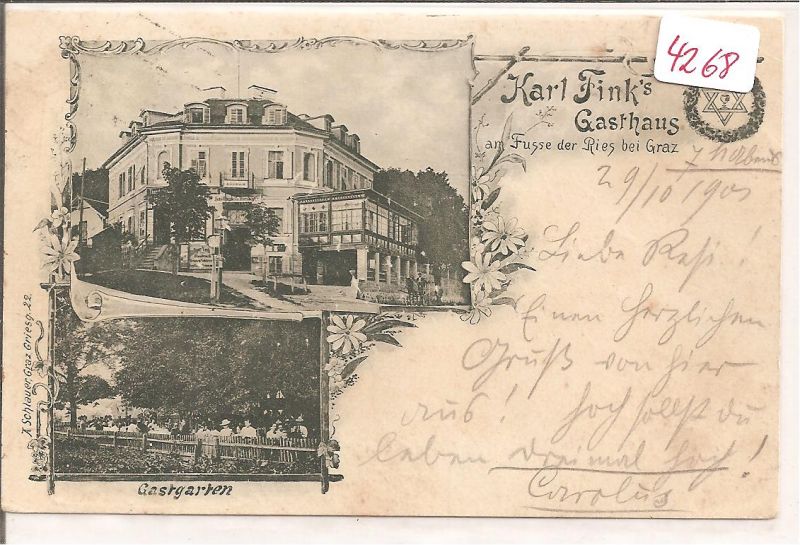 4268
Karl Fink's
Gasthaus
am Fusse der Ries bei Graz
7 h Abends
29/10 1901
Liebe Resi!
Einen herzlichen
Gruß von hier
aus! hoch sollst du
leben dreimal hoch!
Carolus
A. Schlauer, Graz Griesg. 22.
Gastgarten